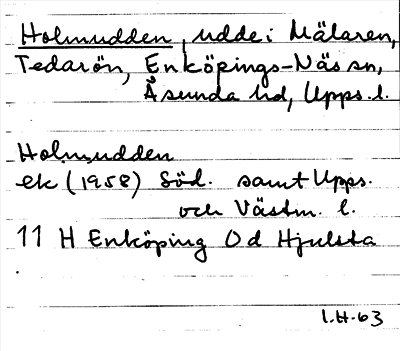 Holmudden, udde i Mälaren,
Tedarön, Enköpings-Näs sn,
Åsunda hd, Upps. l.
Holmudden
ek (1958) Söd. samt Upps.
och Västm. l.
11 H Enköping Od Hjulsta
I.H.63